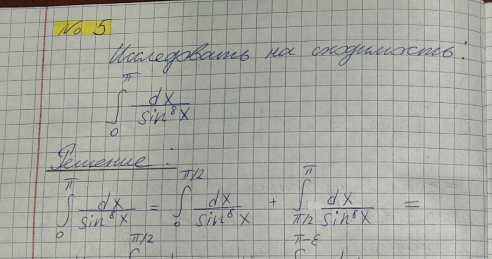 № 5
Исследовать на сходимость:
∫₀^π dx/sin⁸x
Решение:
∫₀^π dx/sin⁸x = ∫₀^{π/2} dx/sin⁸x + ∫_{π/2}^π dx/sin⁸x =
π/2 π-ε